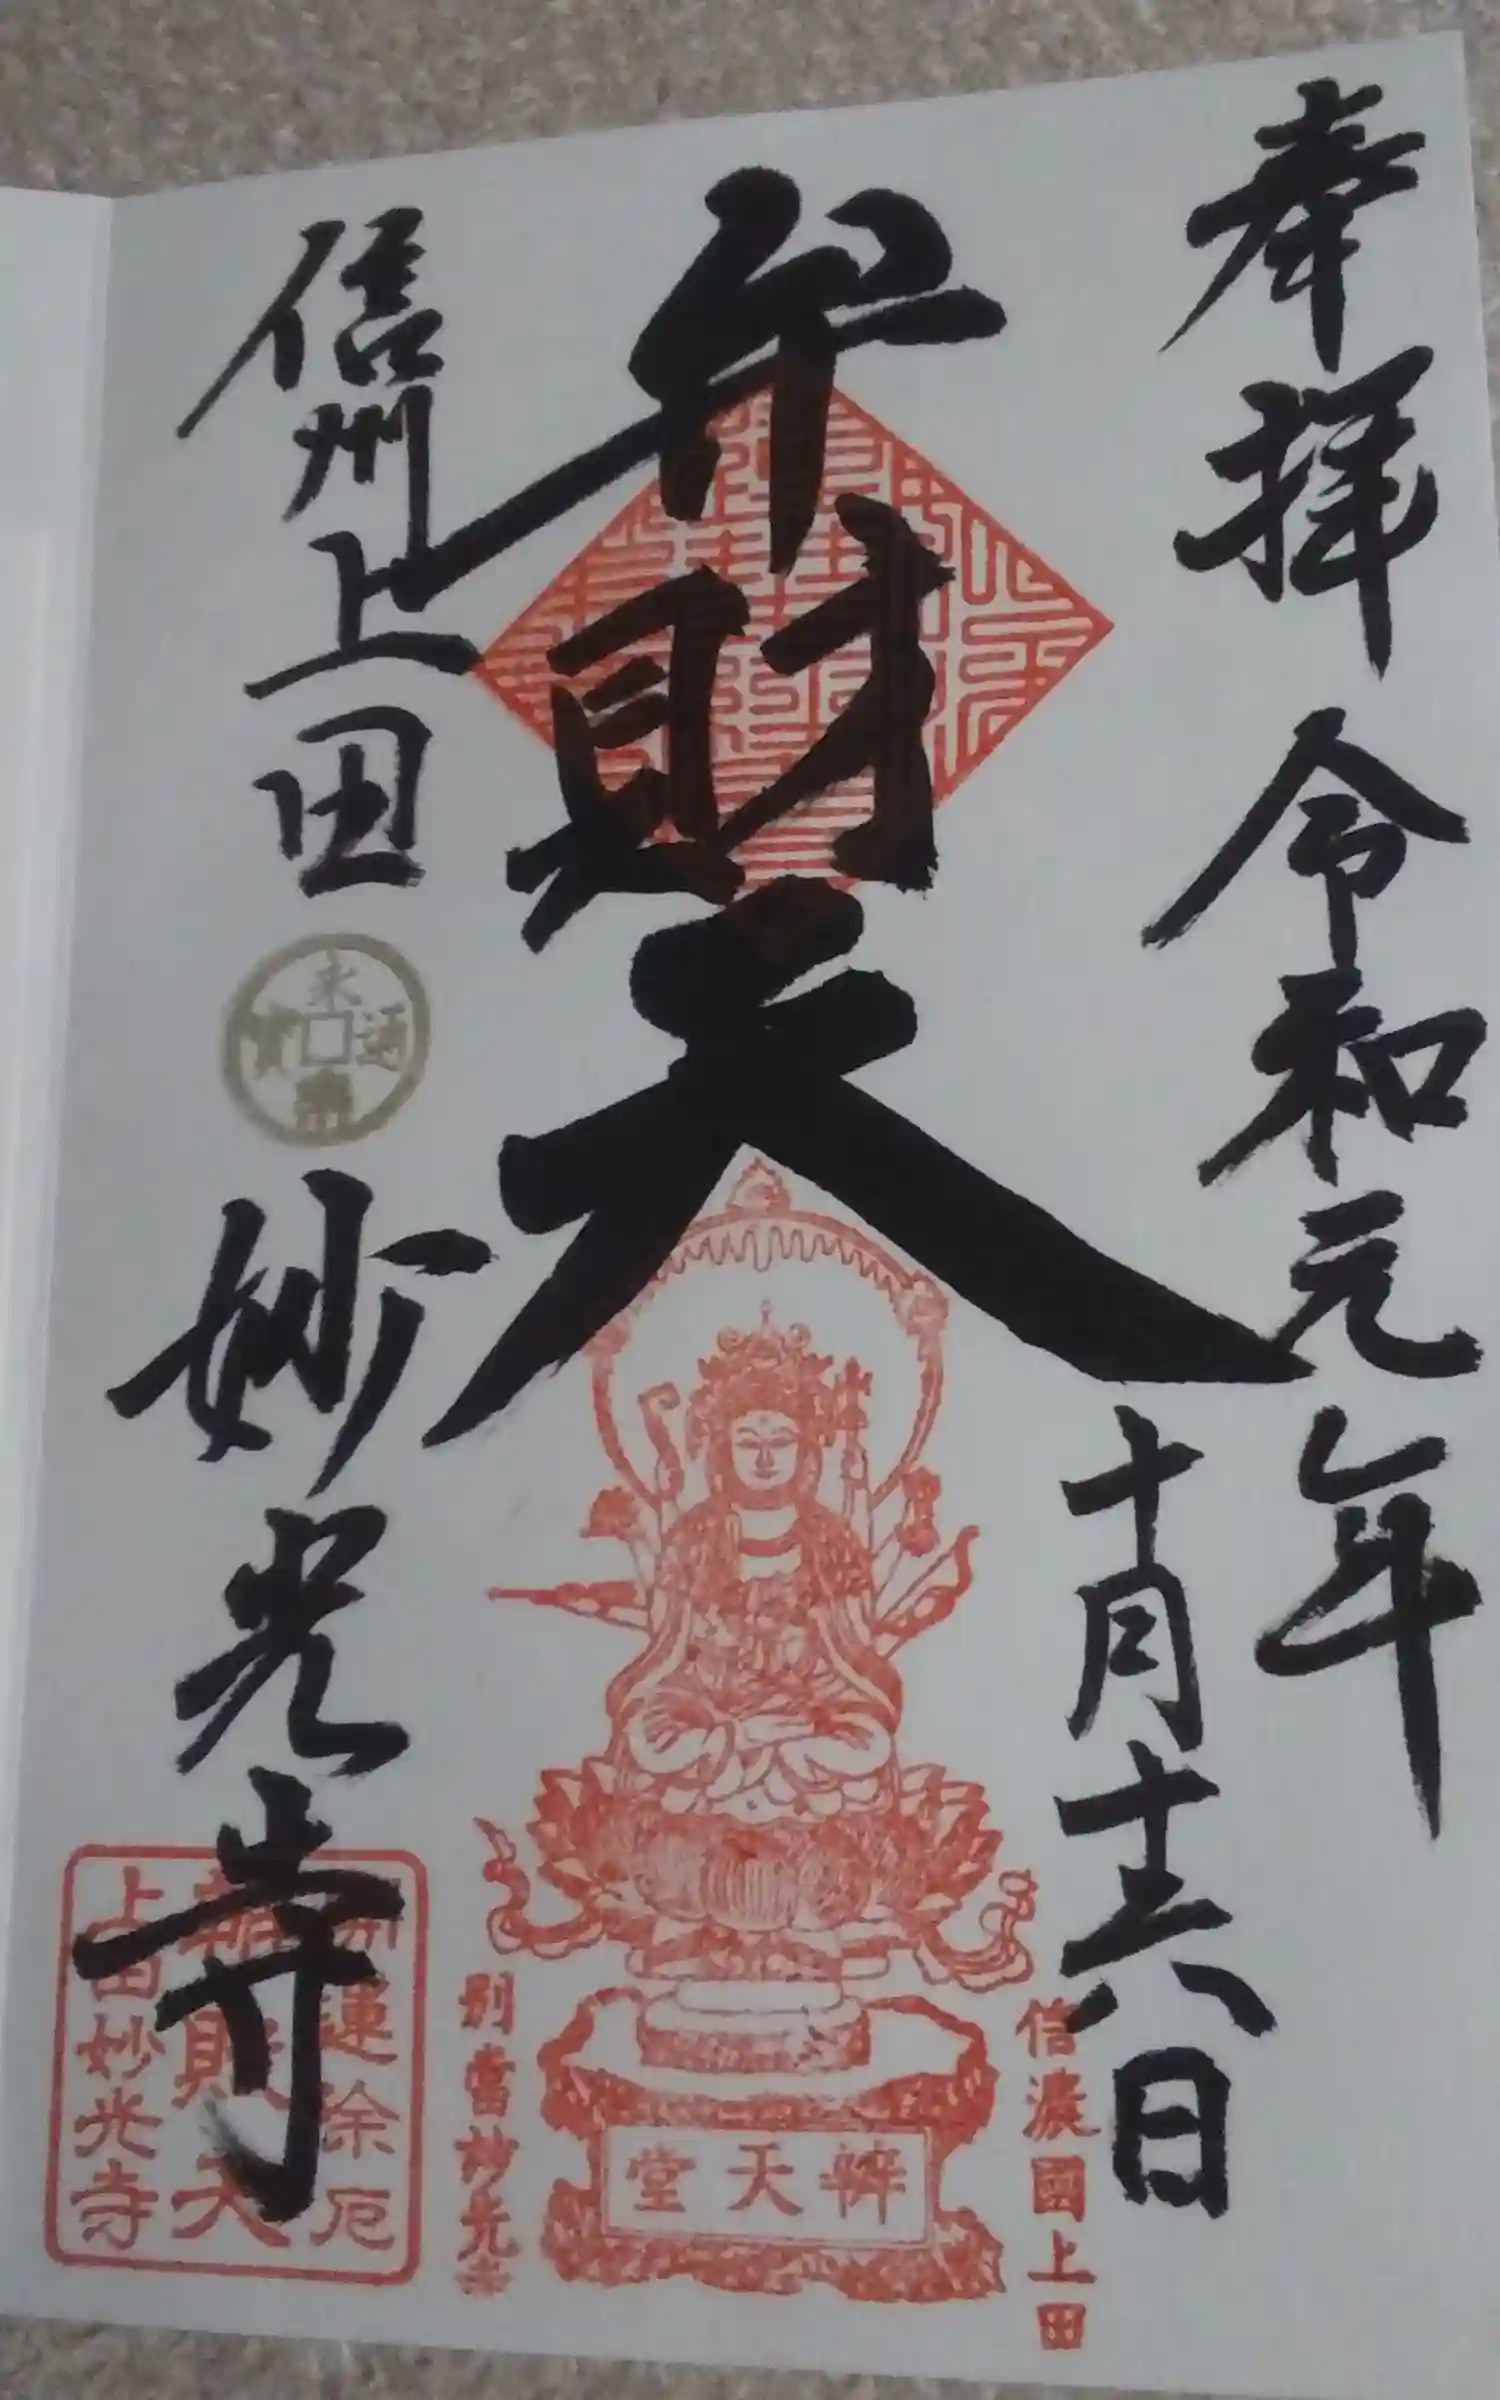 奉拝 令和元年
十月十六日
弁財天
信州上田
妙光寺
永通寳
信濃國上田
辨天堂
別當妙光寺
開運除厄
財天
上田妙光寺